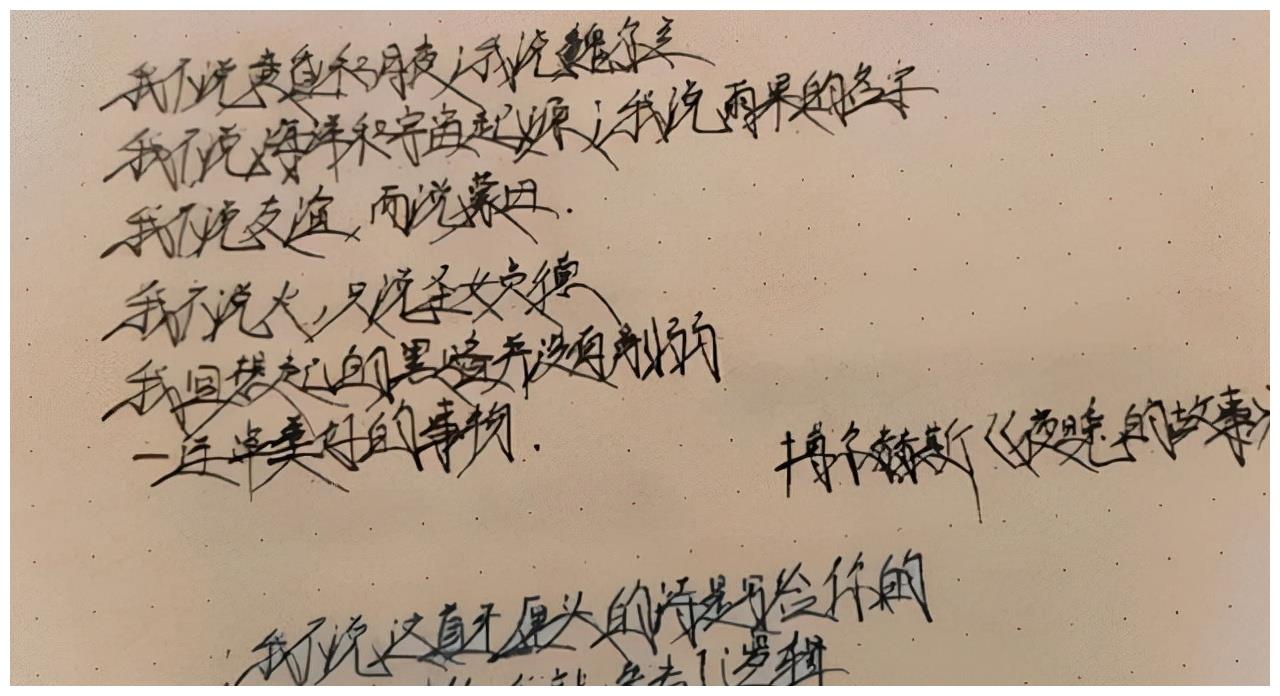 我不说黄昏和月夜；我说魏尔兰
我不说海洋和宇宙起源；我说雨果的名字
我不说友谊，而说蒙田.
我不说火，只说圣女贞德
我回想起的黑暗并没有削弱
一连串美好的事物.
博尔赫斯《夜晚的故事》
我不说这首无厘头的诗是写给你的
了逻辑